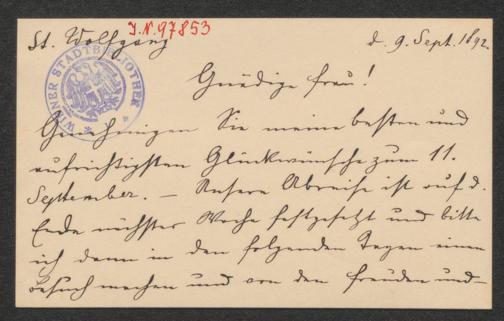 J.N. 97853
St. Wolfgang d. 9. Sept. 1892.
WIENER STADTBIBLIOTHEK
Gnädige Frau!
Genehmigen Sie meine besten und
aufrichtigsten Glückwünsche zum 11.
September. – Unsere Abreise ist auf d.
Ende nächster Woche festgesetzt und bitte
ich dann in den folgenden Tagen einen
Besuch machen und von den Freuden und